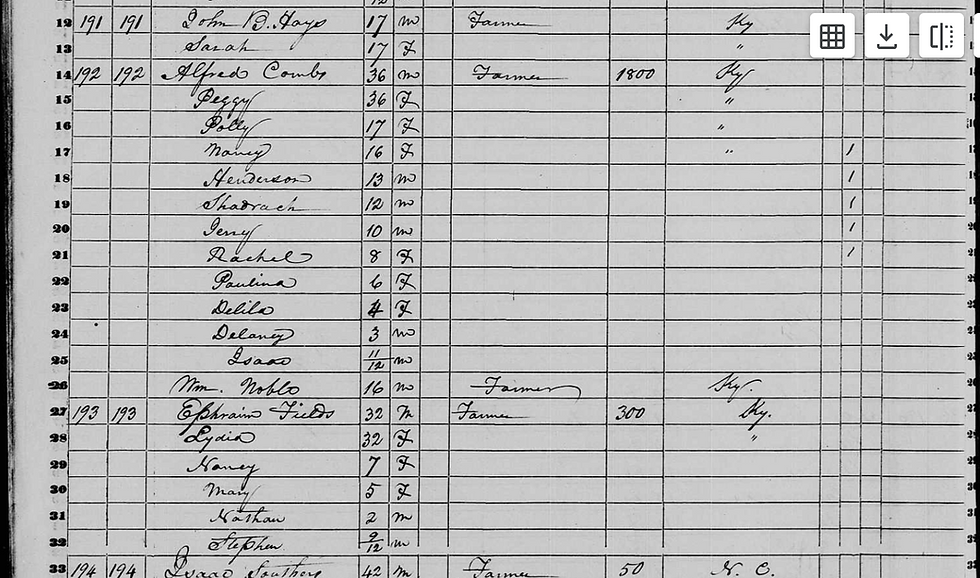 12 191 191 John B. Hays 17 m Farmer Ky
13 Sarah 17 F "
14 192 192 Alfred Combs 36 m Farmer 1800 Ky
15 Peggy 36 F "
16 Polly 17 F "
17 Nancy 16 F " 1
18 Henderson 13 m 1
19 Shadrach 12 m 1
20 Jerry 10 m 1
21 Rachel 8 F 1
22 Paulina 6 F
23 Delila 4 F
24 Delaney 3 m
25 Isaac 11/12 m
26 Wm. Noble 16 m Farmer Ky.
27 193 193 Ephraim Fields 32 M Farmer 300 Ky.
28 Lydia 32 F "
29 Nancy 7 F
30 Mary 5 F
31 Nathan 2 m
32 Stephen 9/12 m
33 194 194 Isaac Southers 42 M Farmer 50 N. C.